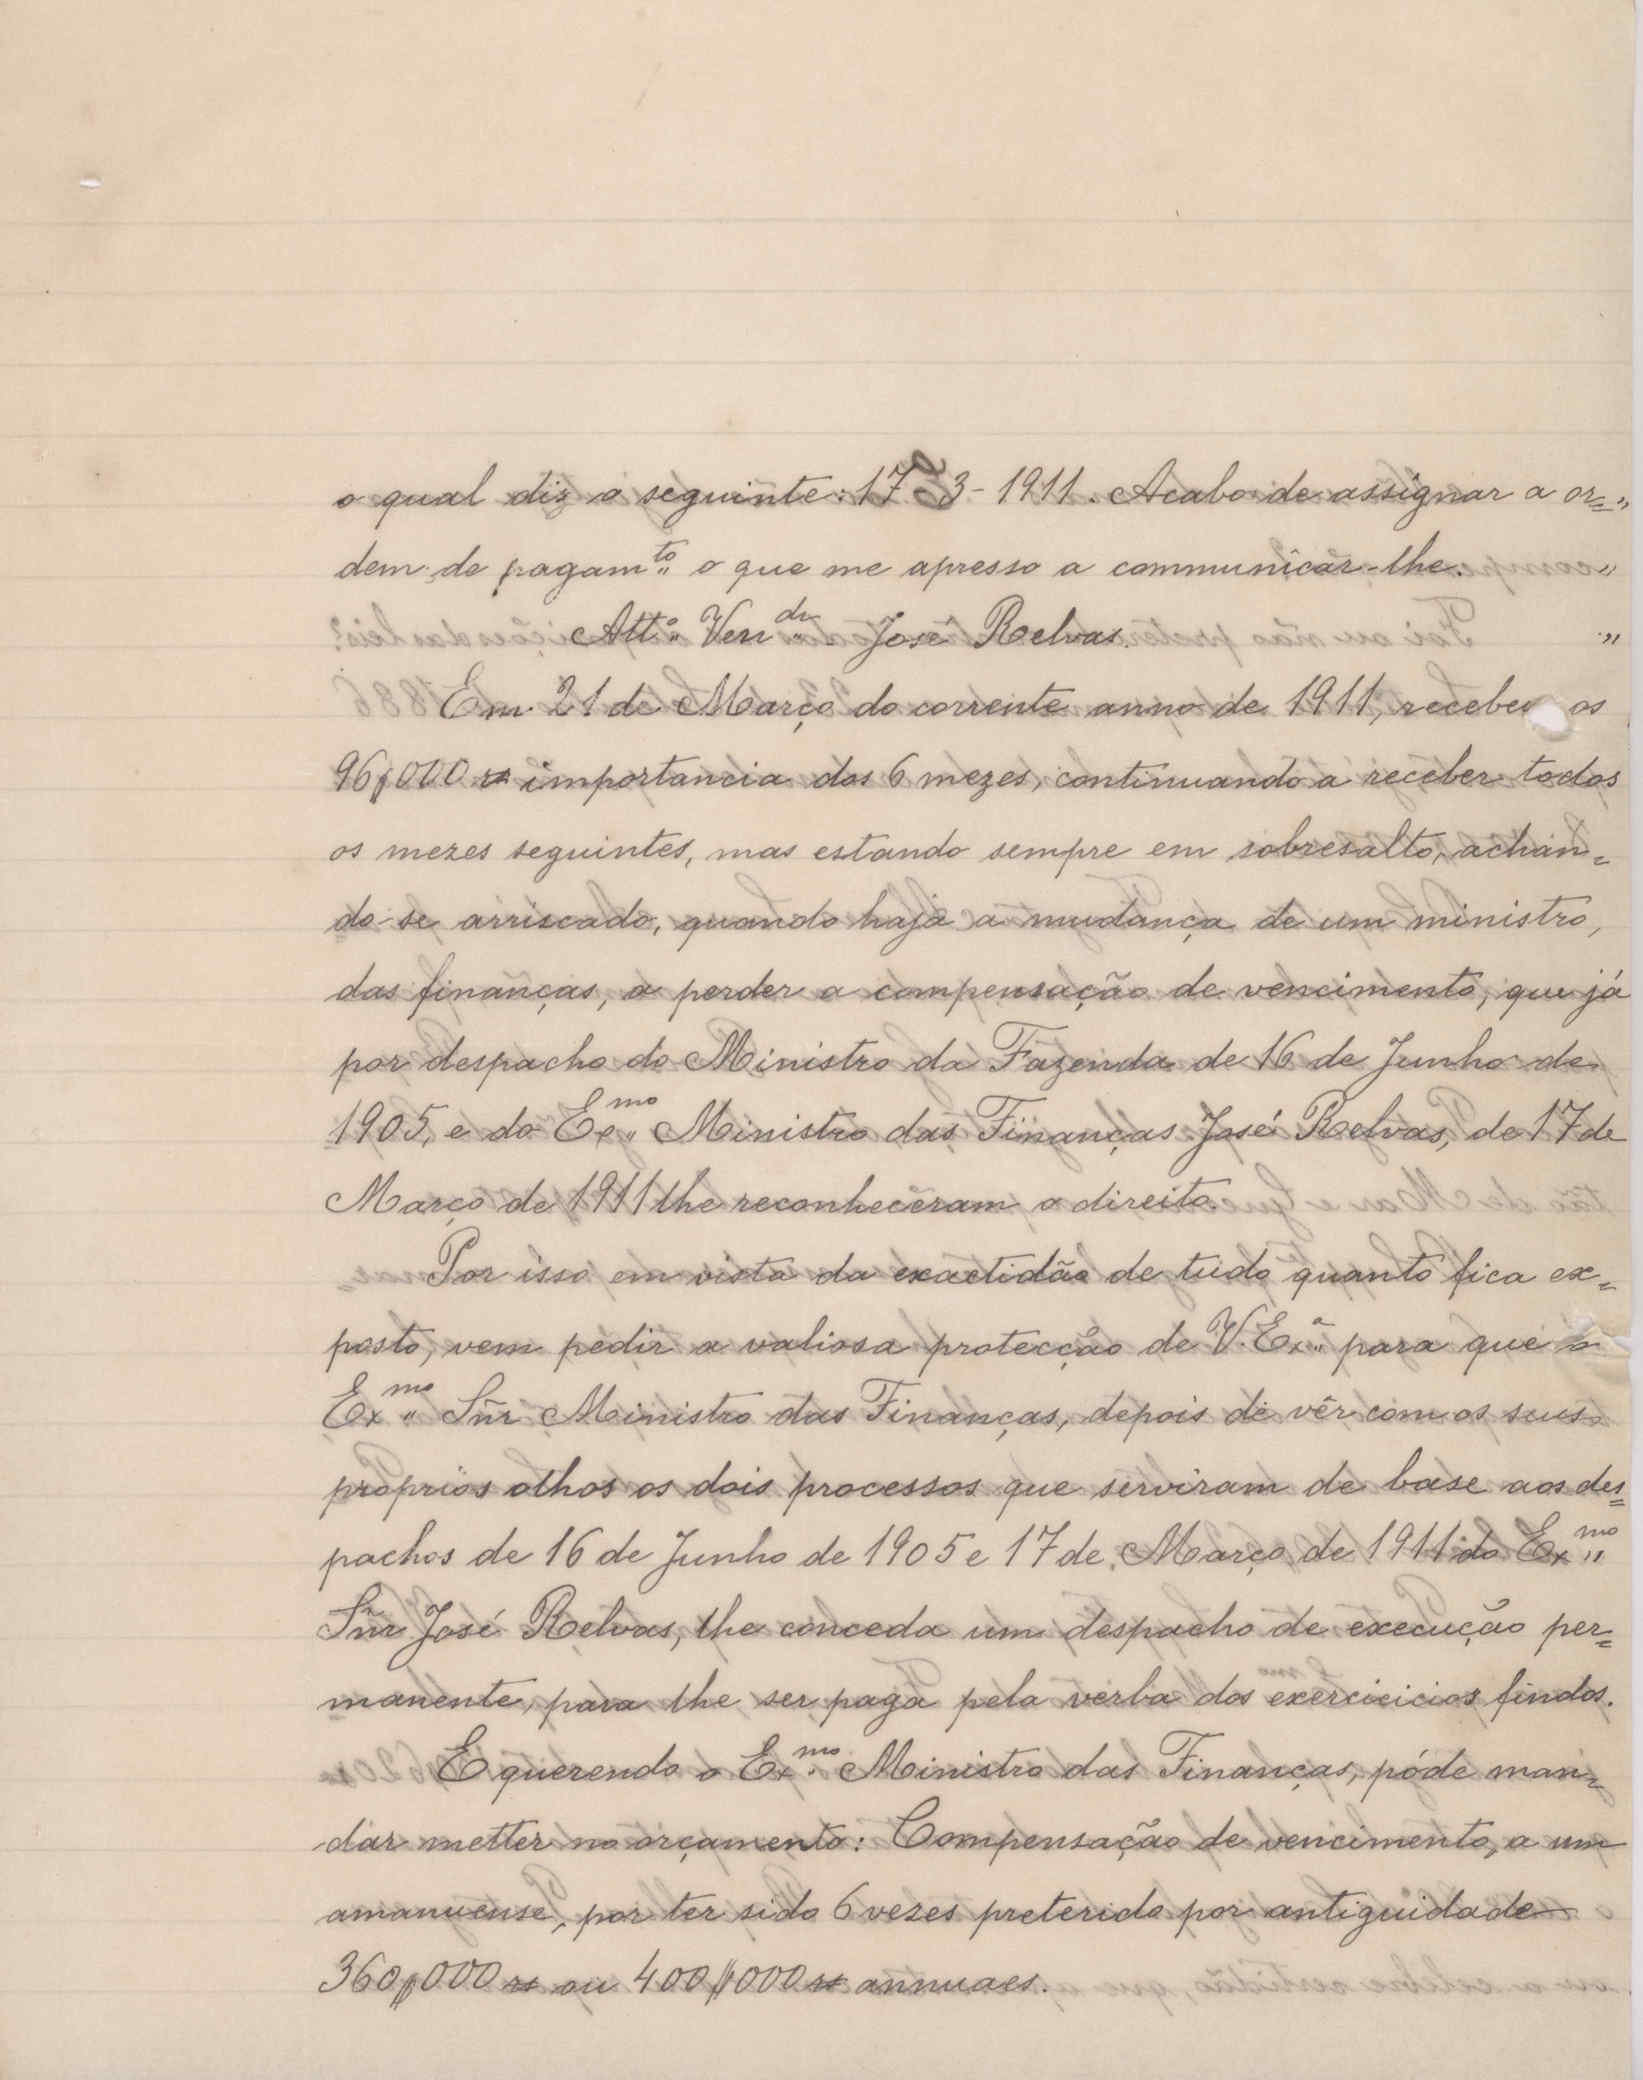 o qual diz o seguinte: 17-3-1911. Acabo de assignar a or= "
dem de pagam.to o que me apresso a communicar-lhe. "
Att.o Ven.dr José Relvas. "
Em 21 de Março do corrente anno de 1911, recebeu os
96$000 rs importancia dos 6 mezes, continuando a receber todos
os mezes seguintes, mas estando sempre em sobresalto, achan=
do-se arriscado, quando haja a mudança de um ministro,
das finanças, a perder a compensação de vencimento, que já
por despacho do Ministro da Fazenda de 16 de Junho de
1905, e do Ex.mo Ministro das Finanças José Relvas, de 17 de
Março de 1911 lhe reconheceram o direito.
Por isso em vista da exactidão de tudo quanto fica ex=
posto, vem pedir a valiosa protecção de V. Ex.a para que o
Ex.mo Sñr Ministro das Finanças, depois de vêr com os seus
proprios olhos os dois processos que serviram de base aos des=
pachos de 16 de Junho de 1905 e 17 de Março de 1911 do Ex.mo
Sñr José Relvas, lhe conceda um despacho de execução per=
manente, para lhe ser paga pela verba dos exercicicios findos.
E querendo o Ex.mo Ministro das Finanças, póde man=
dar metter no orçamento: Compensação de vencimento, a um
amanuense, por ter sido 6 vezes preterido por antiguidade
360$000 rs ou 400$000 rs annuaes.